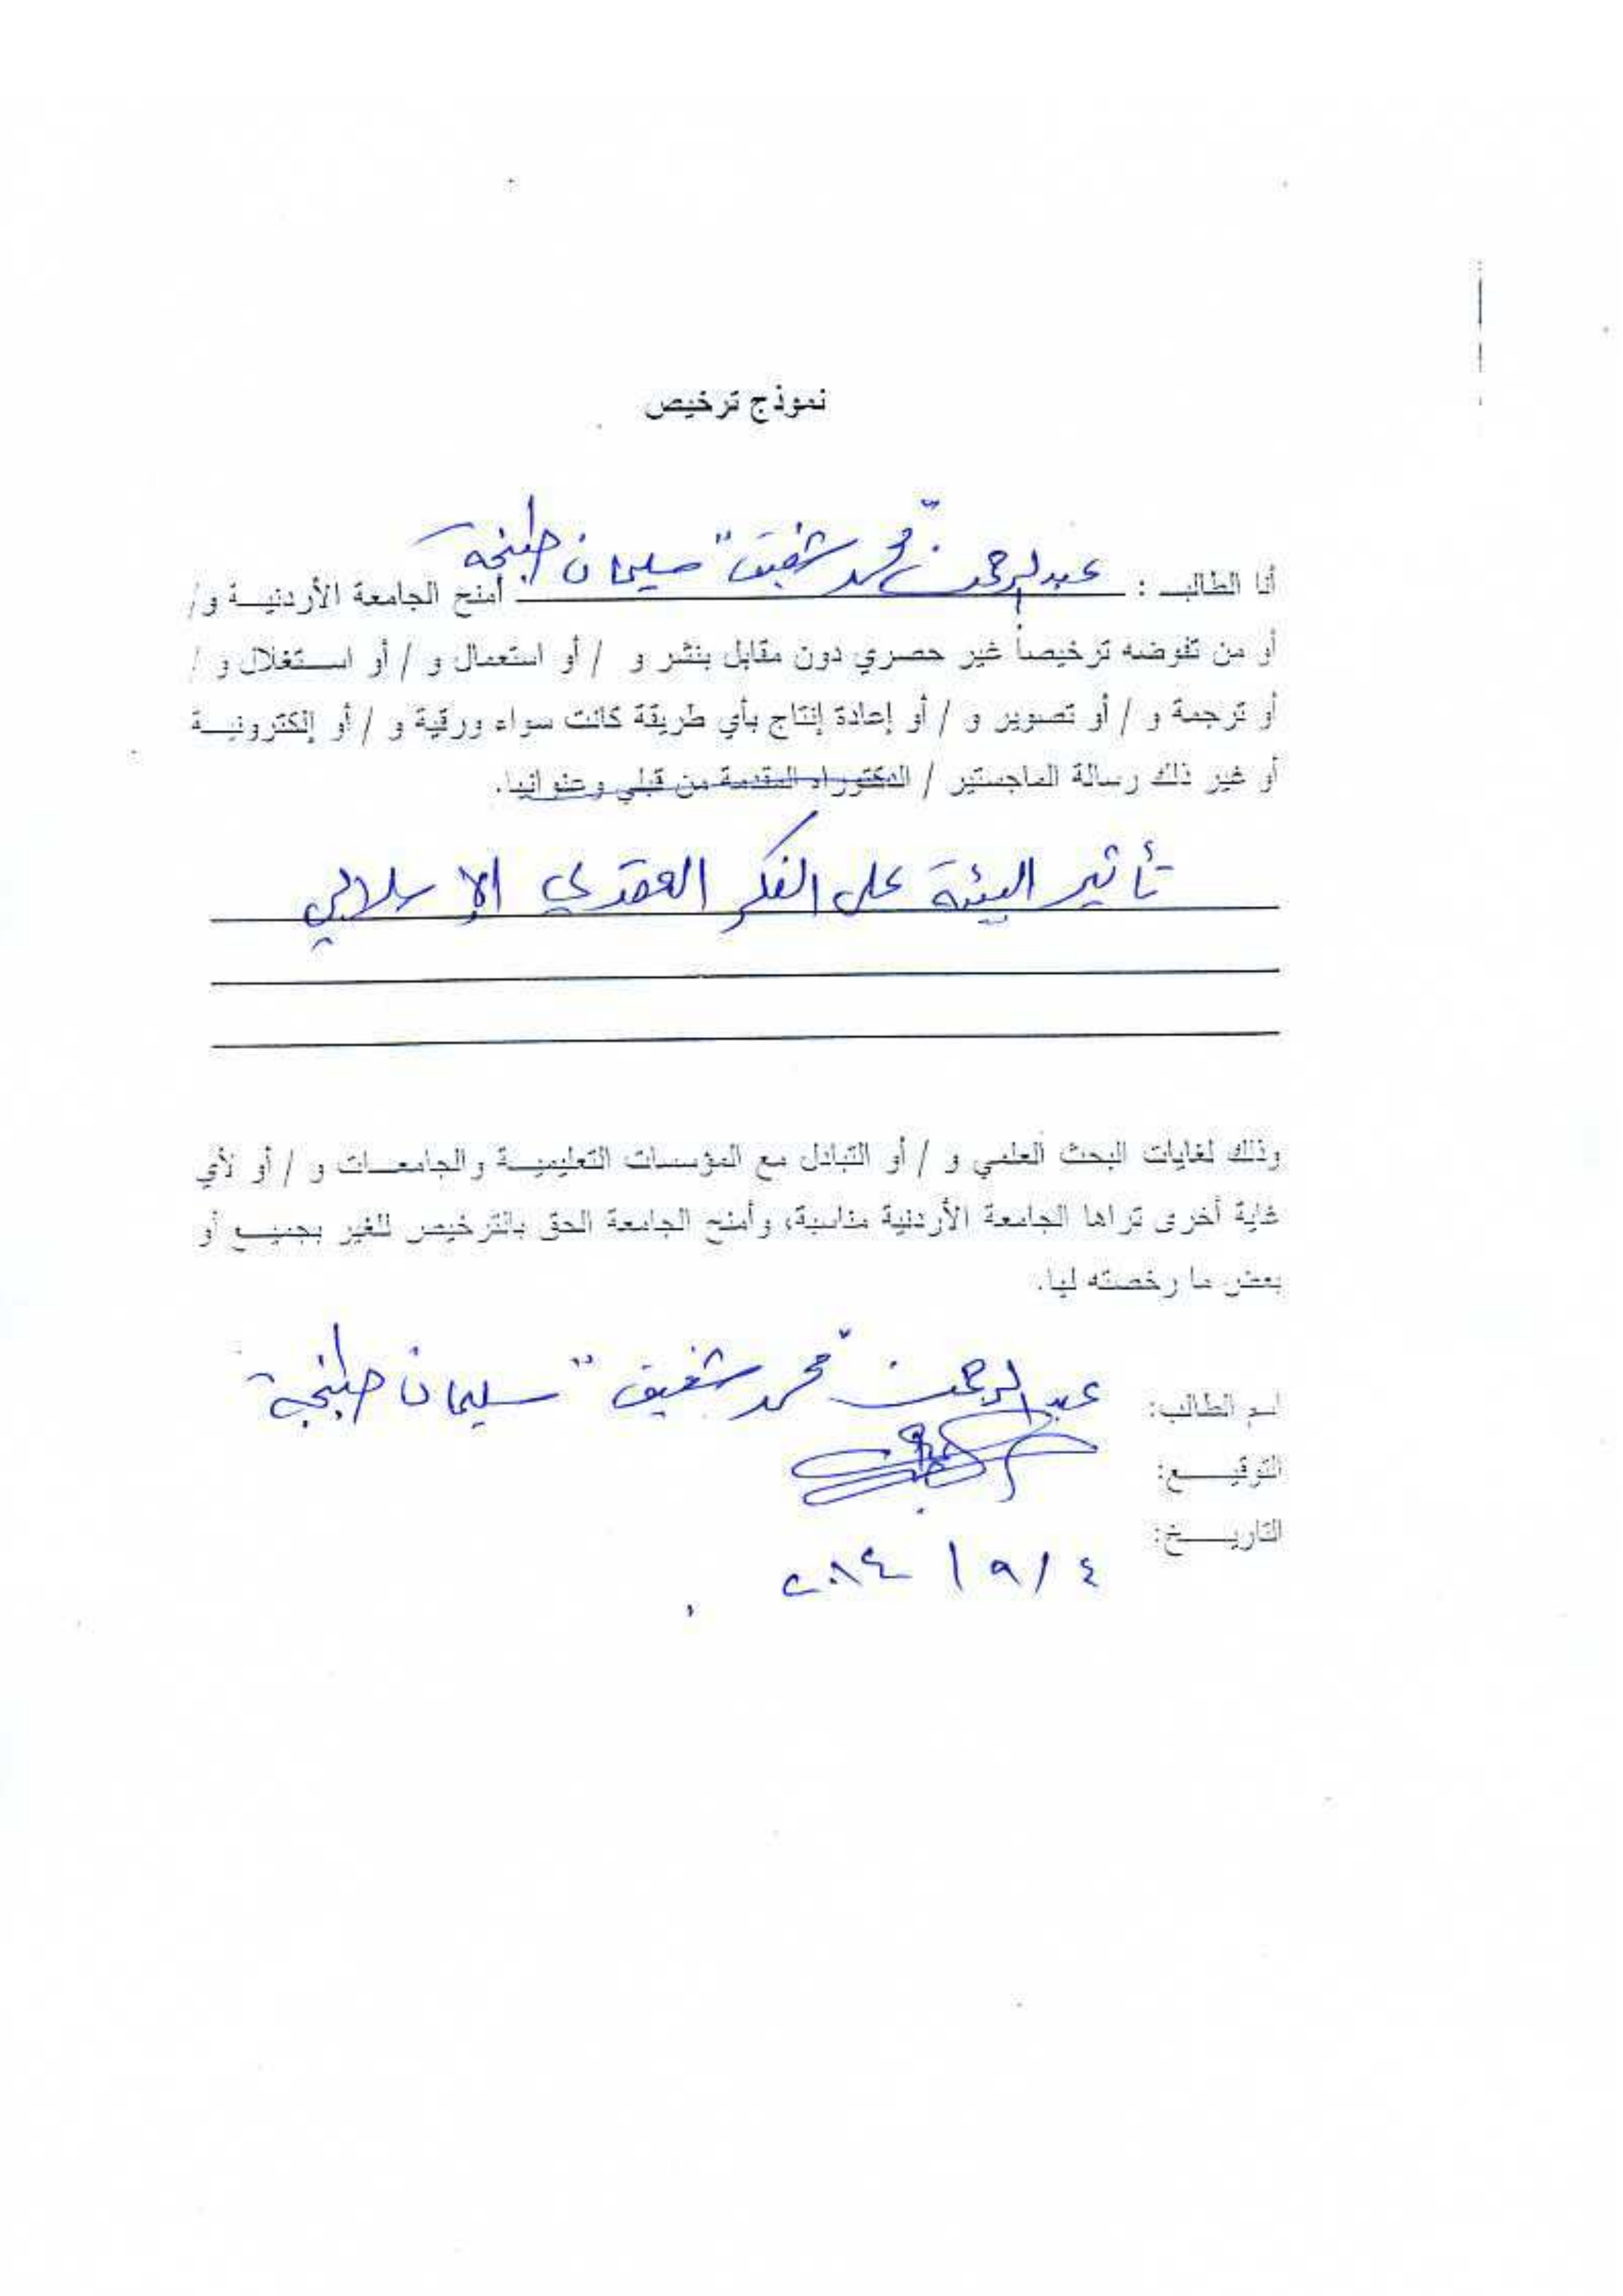 نموذج ترخيص
أنا الطالب : عبدالرحمن "محمد شفيق" سليمان طبنجة أمنح الجامعة الأردنية و/
أو من تفوضه ترخيصاً غير حصري دون مقابل بنشر و / أو استعمال و / أو استغلال و /
أو ترجمة و / أو تصوير و / أو إعادة إنتاج بأي طريقة كانت سواء ورقية و / أو إلكترونية
أو غير ذلك رسالة الماجستير / الدكتوراه المقدمة من قبلي وعنوانها.
تأثير البيئة على الفكر العقدي الإسلامي
وذلك لغايات البحث العلمي و / أو التبادل مع المؤسسات التعليمية والجامعات و / أو لأي
غاية أخرى تراها الجامعة الأردنية مناسبة، وأمنح الجامعة الحق بالترخيص للغير بجميع أو
بعض ما رخصته لها.
اسم الطالب: عبدالرحمن "محمد شفيق" سليمان طبنجة
التوقيع:
التاريخ: ٤ / ٩ / ٢٠١٤